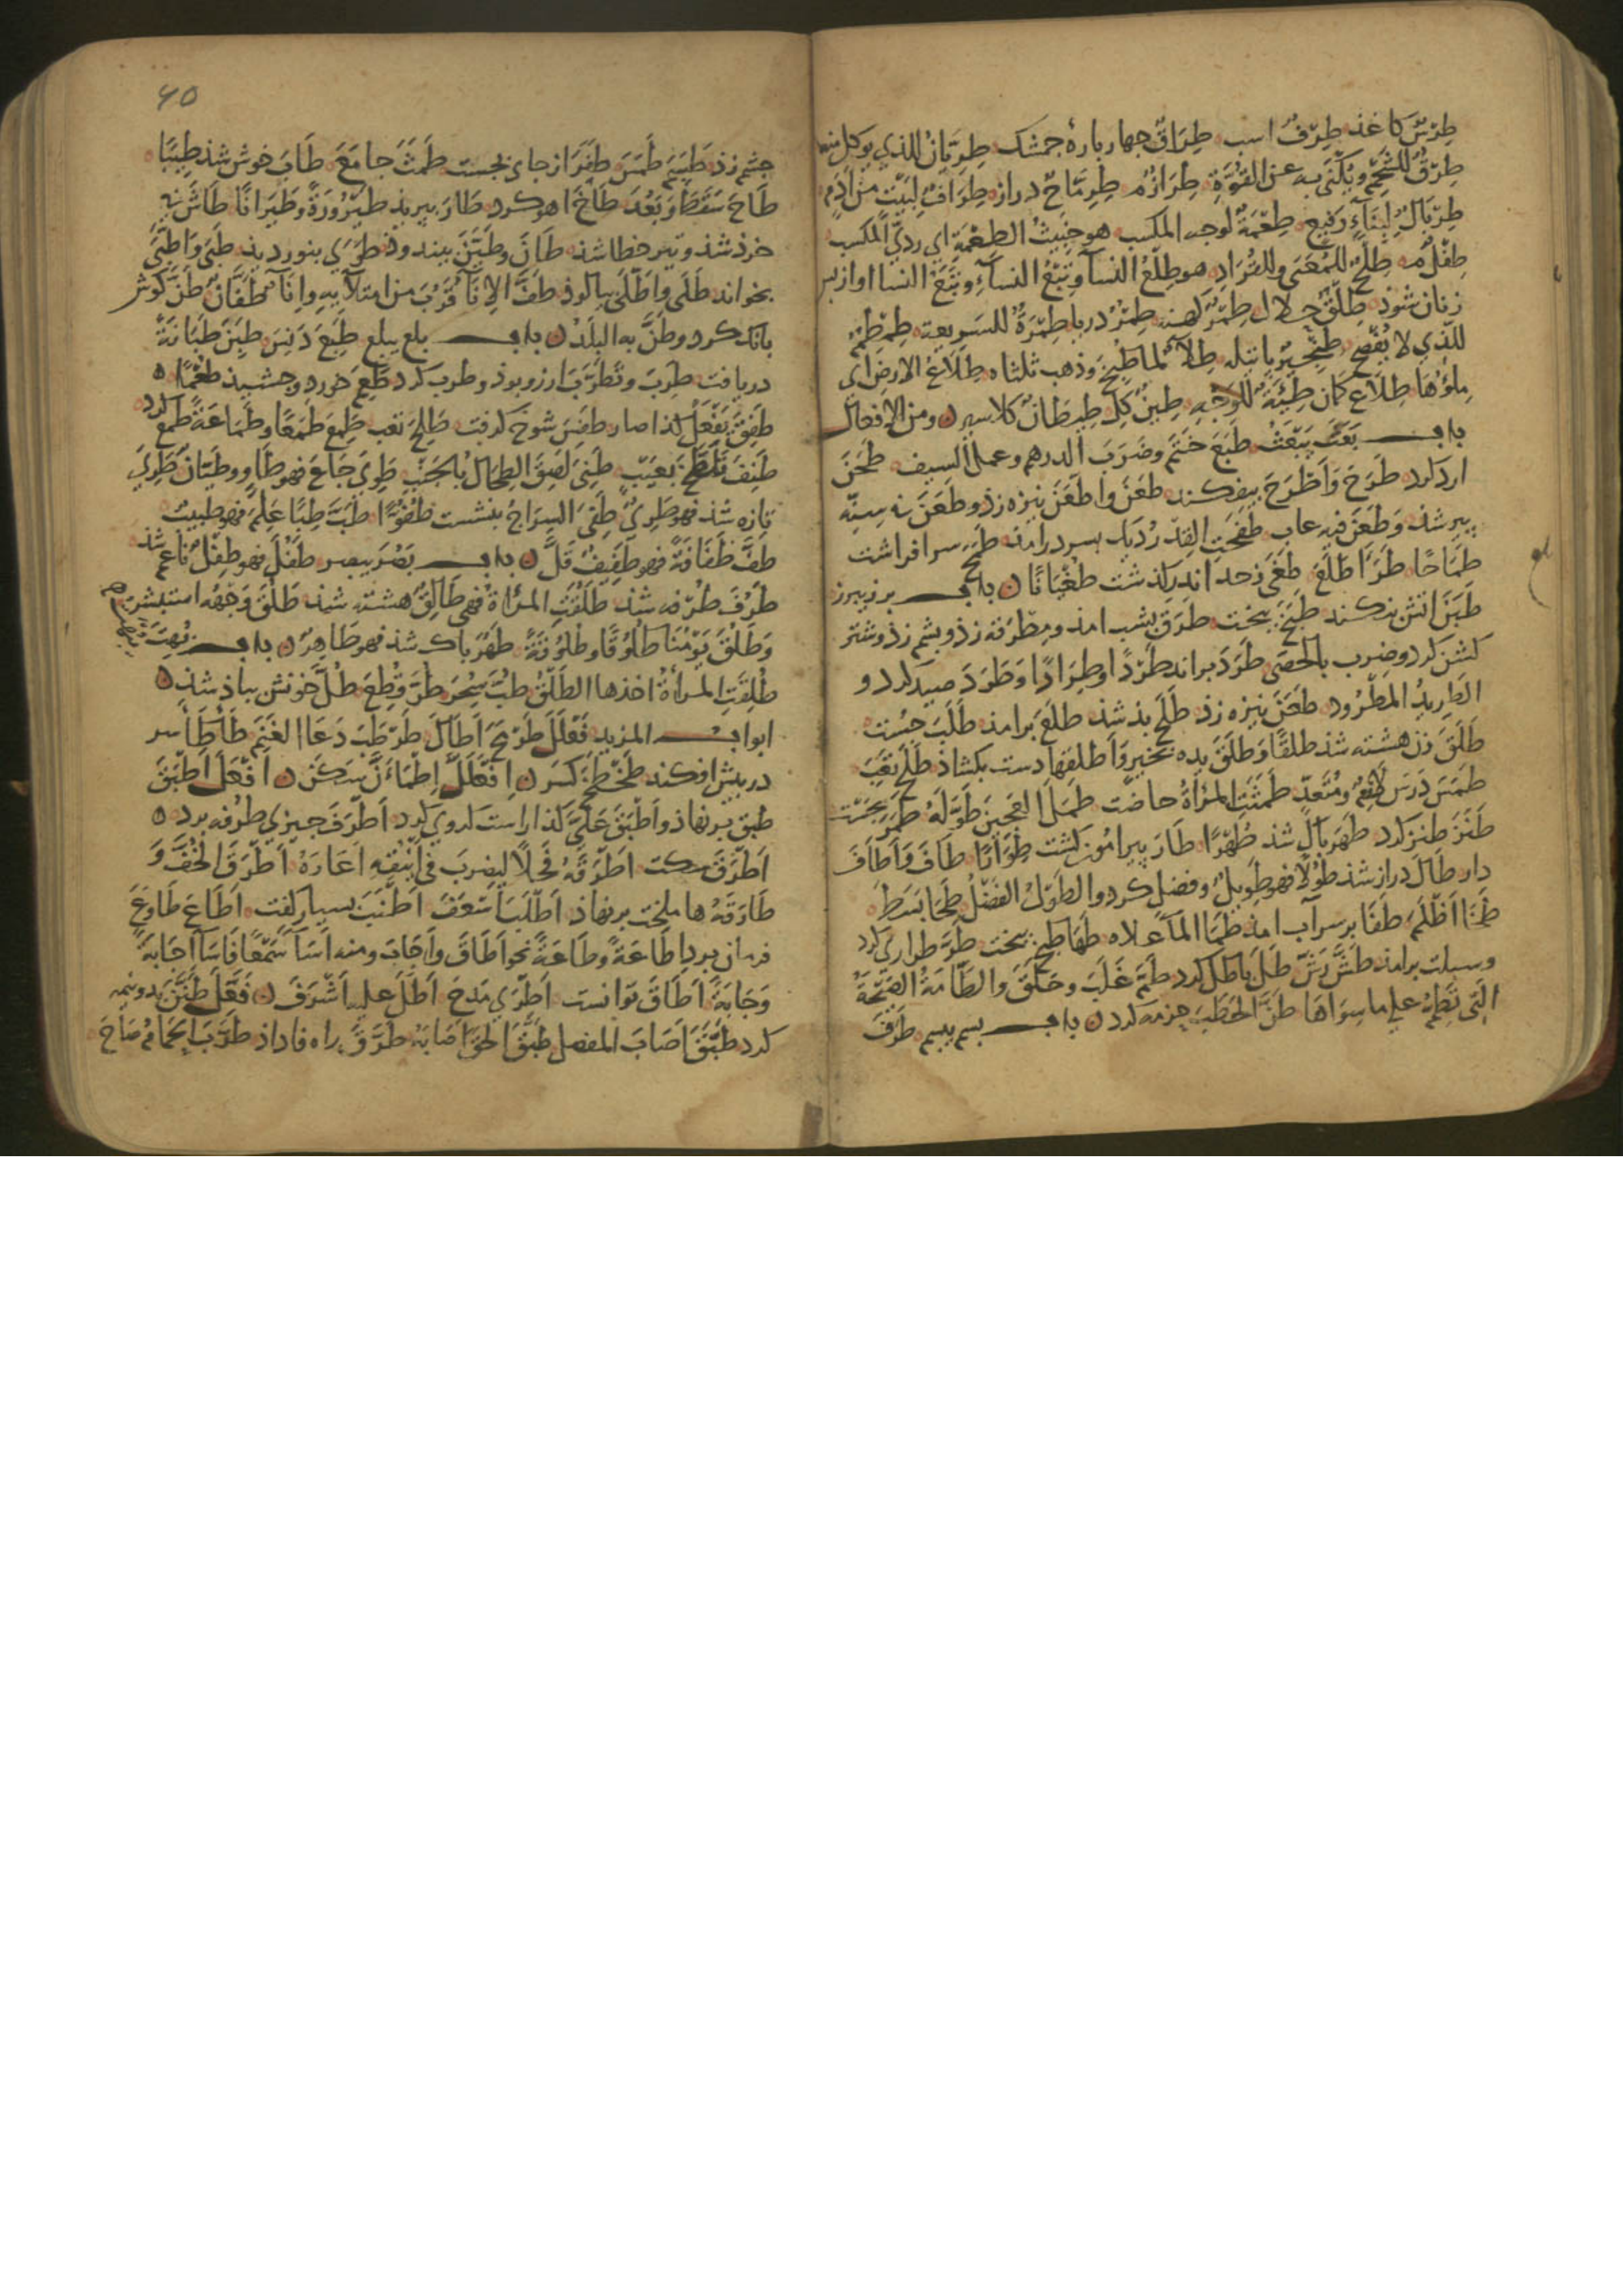 طِرْسٌ كاغذ طِرْفٌ اسب طِرَاقٌ جهار بارهٔ جمشك طِرِيَّانٌ للذي يوكل عليه
طِرْقٌ للشحم ويكنى به عن القوة طِرَازٌ م طِرِمَّاحٌ دراز طِرَافٌ لبيت من ادم
طِرْبَالٌ لبناء رفيع طِعْمَةٌ لوجه المكسب هو خبيث الطعمة اي ردي المكسب
طِفْلٌ م طِلْحٌ للمعيى وللقراد هو طِلْعُ النساء وتبع النساء او از پس
زنان شوذ طِلْقٌ حلال طِمْرٌ كهنه طِمْرٌ دربا طِمِرَّةٌ للسريعة طِمْطِمٌ
للذي لا يفصح طِنْجِيرٌ باتيله طِلَاءٌ لما طبخ وذهب ثلثاه طِلَاعُ الارض اي
ملؤها طِلَاع كمان طِيَّةٌ للوجه طِينٌ كل طِيطَانٌ كلاسر ومن الافعال
باب بَعَثَ يَبْعَثُ طَبَعَ ختم وضرب الدرهم وعمل السيف طَحَنَ
ارد كرد طَرَحَ وَاطَّرَحَ بيفكند طَعَنَ وَاطَّعَنَ نيزه زذ وطَعَنَ في سنه
پير شذ وَطَعَنَ فيه عاب طَفَحَتِ القدر ديك بسر درامذ طَمَحَ سر افراشت
طِمَاحًا طَرَأَ طَلَعَ طَغَى زحد اندر كذشت طُغْيَانًا باب برز يبرز
طَبَنَ اتش بركند طَبَخَ پخت طَرَقَ بشب امذ ومِطْرَقه زذ وپشم زذ وشتر
كشن كرد وضرب بالحصى طَرَدَ براند طَرْدًا وطِرَادًا وَطَرَدَ صيد كرد و
الطريد المطرود طَعَنَ نيزه زذ طَلَحَ بذ شذ طَلَعَ برامذ طَلَبَ جست
طَلَقَ زن هشته شذ طلقًا وَطَلَقَ يده بخير وَاطلقها دست بكشاذ طَلَحَ تعب
طَمَسَ درس لازم ومتعدٍّ طَمَثَتِ المرأة حاضت طَمَلَ العجين طوّله طَمَرَ بجست
طَنَزَ طنز كرد طَهَرَ پاك شذ طُهْرًا طَارَ پيرامون كشت طَوَرَانًا طَافَ وَاَطَافَ
دار طَالَ دراز شذ طُولًا فهو طويل وفضل كرد والطول الفضل طَحَا بسط
طَخَا اظلم طَفَا بر سر آب امذ طَمَا الماء علاه طَهَا طبخ پخت طَرَّ طراري كرد
وسبلت برامذ طَشَّ رشّ طَلَّ باطل كرد طَمَّ غلب وحلق والطامة الصيحة
التي تطم على ما سواها طَنَّ الحطب حزمه كرد باب بسم يبسم طَرَفَ
٤٥
چشم زذ طَسَمَ طَمَسَ طَفَرَ از جاي بجست طَمَثَ جامع طَابَ خوش شذ طِيبًا
طَاحَ سقط وبعد طَاخَ اهو كرد طَارَ بپريذ طَيْرُورَةً وطَيَرَانًا طَاشَ نيه
خرد شذ وتير خطا شذ طَانَ وطَيَّنَ بيندوذ طَوَى بنورديذ طَبَى وَاطَّبَى
بخواند طَلَى واَطَّلَى بيالوذ طَفَّ الاناء قرب من امتلائه واناء طَفَّانُ طَنَّ كوش
بانك كرد وطَنَّ به البلد باب بلع يبلع طَبِعَ دنس طَبِنَ طَبَانَةً
دريافت طَرِبَ وتَطَرَّبَ ارزو بوذ وطرب كرد طَعِمَ خورد وچشيذ طَعْمًا
طَفِقَ يفعل كذا صار طَفِسَ شوخ كرفت طَلِحَ تعب طَمِعَ طَمَعًا وطَمَاعَةً طمع كرد
طَنِفَ تلطخ بعيب طَنِيَ لصق الطحال بالجنب طَوِيَ جاع فهو طاوٍ وطيّان طَرِيَ
تازه شذ فهو طريّ طَفِئَ السراج بنشست طُفُوءًا طَبَّ طِبًّا علم فهو طبيب
طَفَّ طَفَافَةً فهو طفيف قلّ باب بصر يبصر طَفُلَ فهو طِفْلٌ ناعم شذ
طَرُفَ طرفه شذ طَلُقَتِ المرأة فهي طالق هشته شذ طَلُقَ وجهه استبشر
وَطَلُقَ يومنا طُلُوقًا وطُلُوقَةً طَهُرَ پاك شذ فهو طاهر باب بُهِتَ يُبْهَتُ
طُلِقَتِ المرأة اخذها الطلق طُبَّ سحر طُرَّ قطع طُلَّ خونش بباذ شذ
ابواب المزيد فَعْلَلَ طَرْمَحَ اطال طَرْطَبَ دعا الغنم طَأْطَأَ سر
در پيش افكند طَخْطَخَ كسر اِفْعَلَلَّ اِطْمَأَنَّ سكن اَفْعَلَ اَطْبَقَ
طبق بر نهاذ واَطْبَقَ على كذا راست كردوي كرد اَطْرَفَ چيزي طرفه برد
اَطْرَقَ سكت اَطْرَقَهُ فحلا ليضرب في اينقه اعاره اَطْرَقَ الخف وَ
طَارَقَهُ هاملخت بر نهاذ اَطْلَبَ اسعف اَطْنَبَ بسيار كفت اَطَاعَ طَاوَعَ
فرمان برد اِطَاعَةً وطَاعَةً نحو اطاق واجاب ومنه اساء سمعا فاساء اجابة
وَجَابَةً اَطَاقَ توانست اَطْرَى مدح اَطَلَّ عليه اشرف فَعَّلَ طَنَّنَ بدونيمه
كرد طَبَّقَ اصاب المفصل طَبَّقَ الحق اصابه طَرَّقَ راه فاداذ طَرَّبَ الحمام صاح